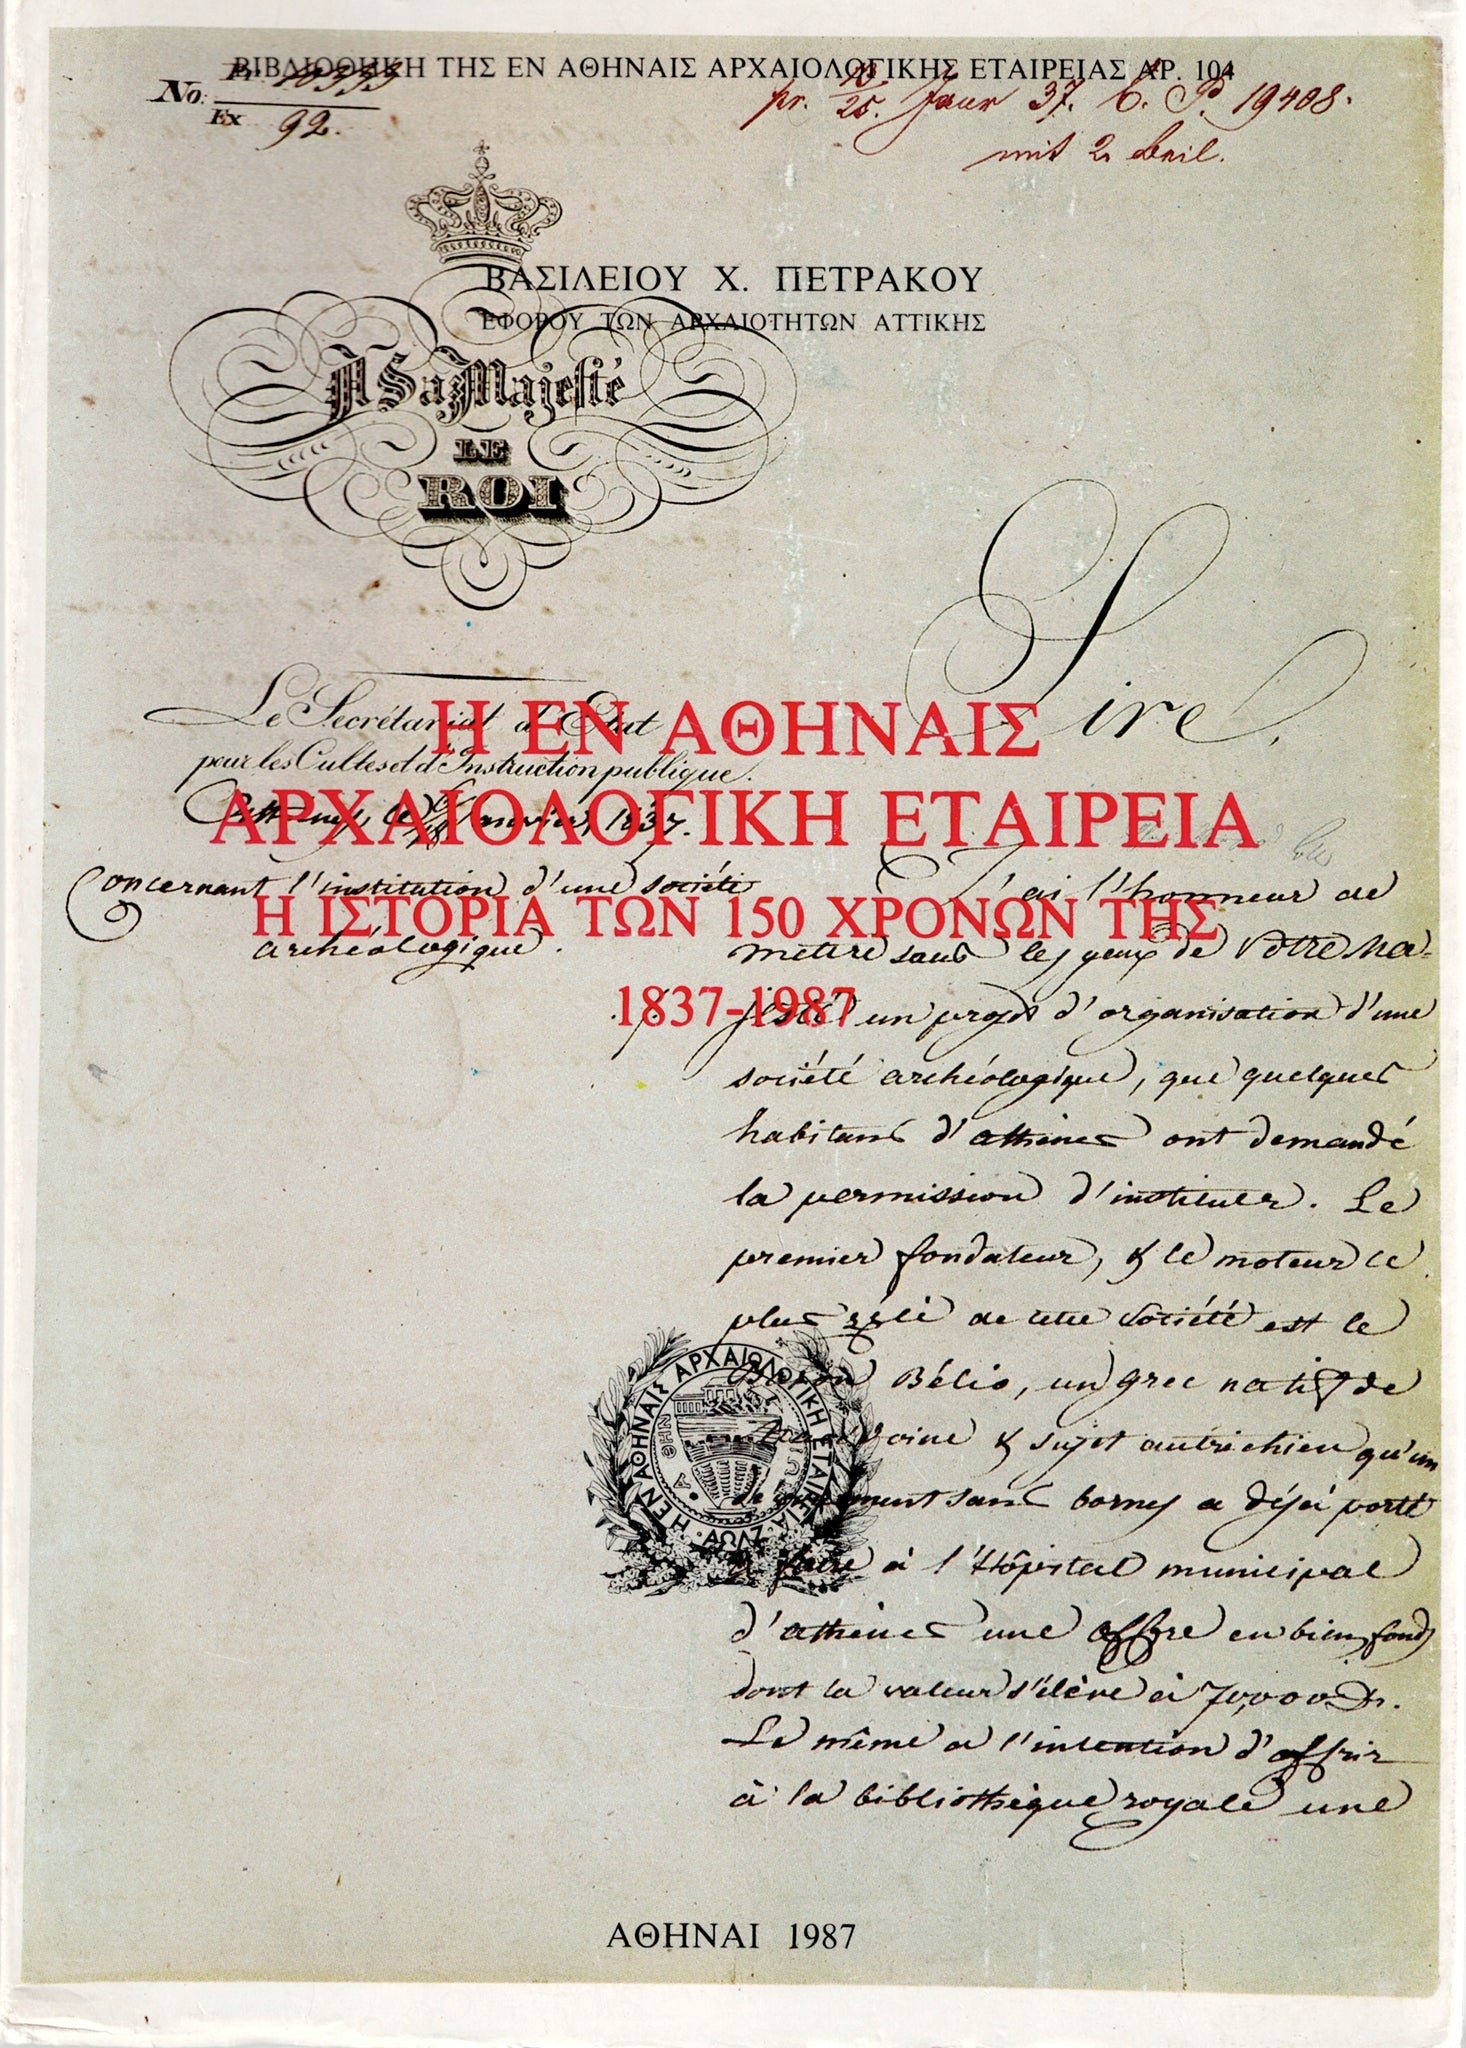 ΒΙΒΛΙΟΘΗΚΗ ΤΗΣ ΕΝ ΑΘΗΝΑΙΣ ΑΡΧΑΙΟΛΟΓΙΚΗΣ ΕΤΑΙΡΕΙΑΣ ΑΡ. 104
No:
Ex 92.
pr. 13/25. Jaur 37. C. P. 19408.
mit 2 Beil.
ΒΑΣΙΛΕΙΟΥ Χ. ΠΕΤΡΑΚΟΥ
ΕΦΟΡΟΥ ΤΩΝ ΑΡΧΑΙΟΤΗΤΩΝ ΑΤΤΙΚΗΣ
A Sa Majesté
LE
ROI
Sire,
Le Secrétariat d'Etat
pour les Cultes et d'Instruction publique.
Η ΕΝ ΑΘΗΝΑΙΣ
ΑΡΧΑΙΟΛΟΓΙΚΗ ΕΤΑΙΡΕΙΑ
Η ΙΣΤΟΡΙΑ ΤΩΝ 150 ΧΡΟΝΩΝ ΤΗΣ
1837-1987
Janvier 1837.
Concernant l'institution d'une société
archéologique.
J'ai l'honneur de
mettre sous les yeux de Votre Ma-
jesté un projet d'organisation d'une
société archéologique, que quelques
habitans d'athènes ont demandé
la permission d'instituer. Le
premier fondateur, & le moteur le
plus zélé de cette Société est le
Baron Bélio, un grec natif de
Macédoine & sujet autrichien qu'un
sans bornes a déjà porté
à faire à l'Hôpital municipal
d'athènes une offre en bien fonds
dont la valeur s'élève à 70,000 Dr.
Le même a l'intention d'offrir
à la bibliothèque royale une
Η ΕΝ ΑΘΗΝΑΙΣ ΑΡΧΑΙΟΛΟΓΙΚΗ ΕΤΑΙΡΕΙΑ
ΑΩΛΖ
ΑΘΗΝΑΙ 1987